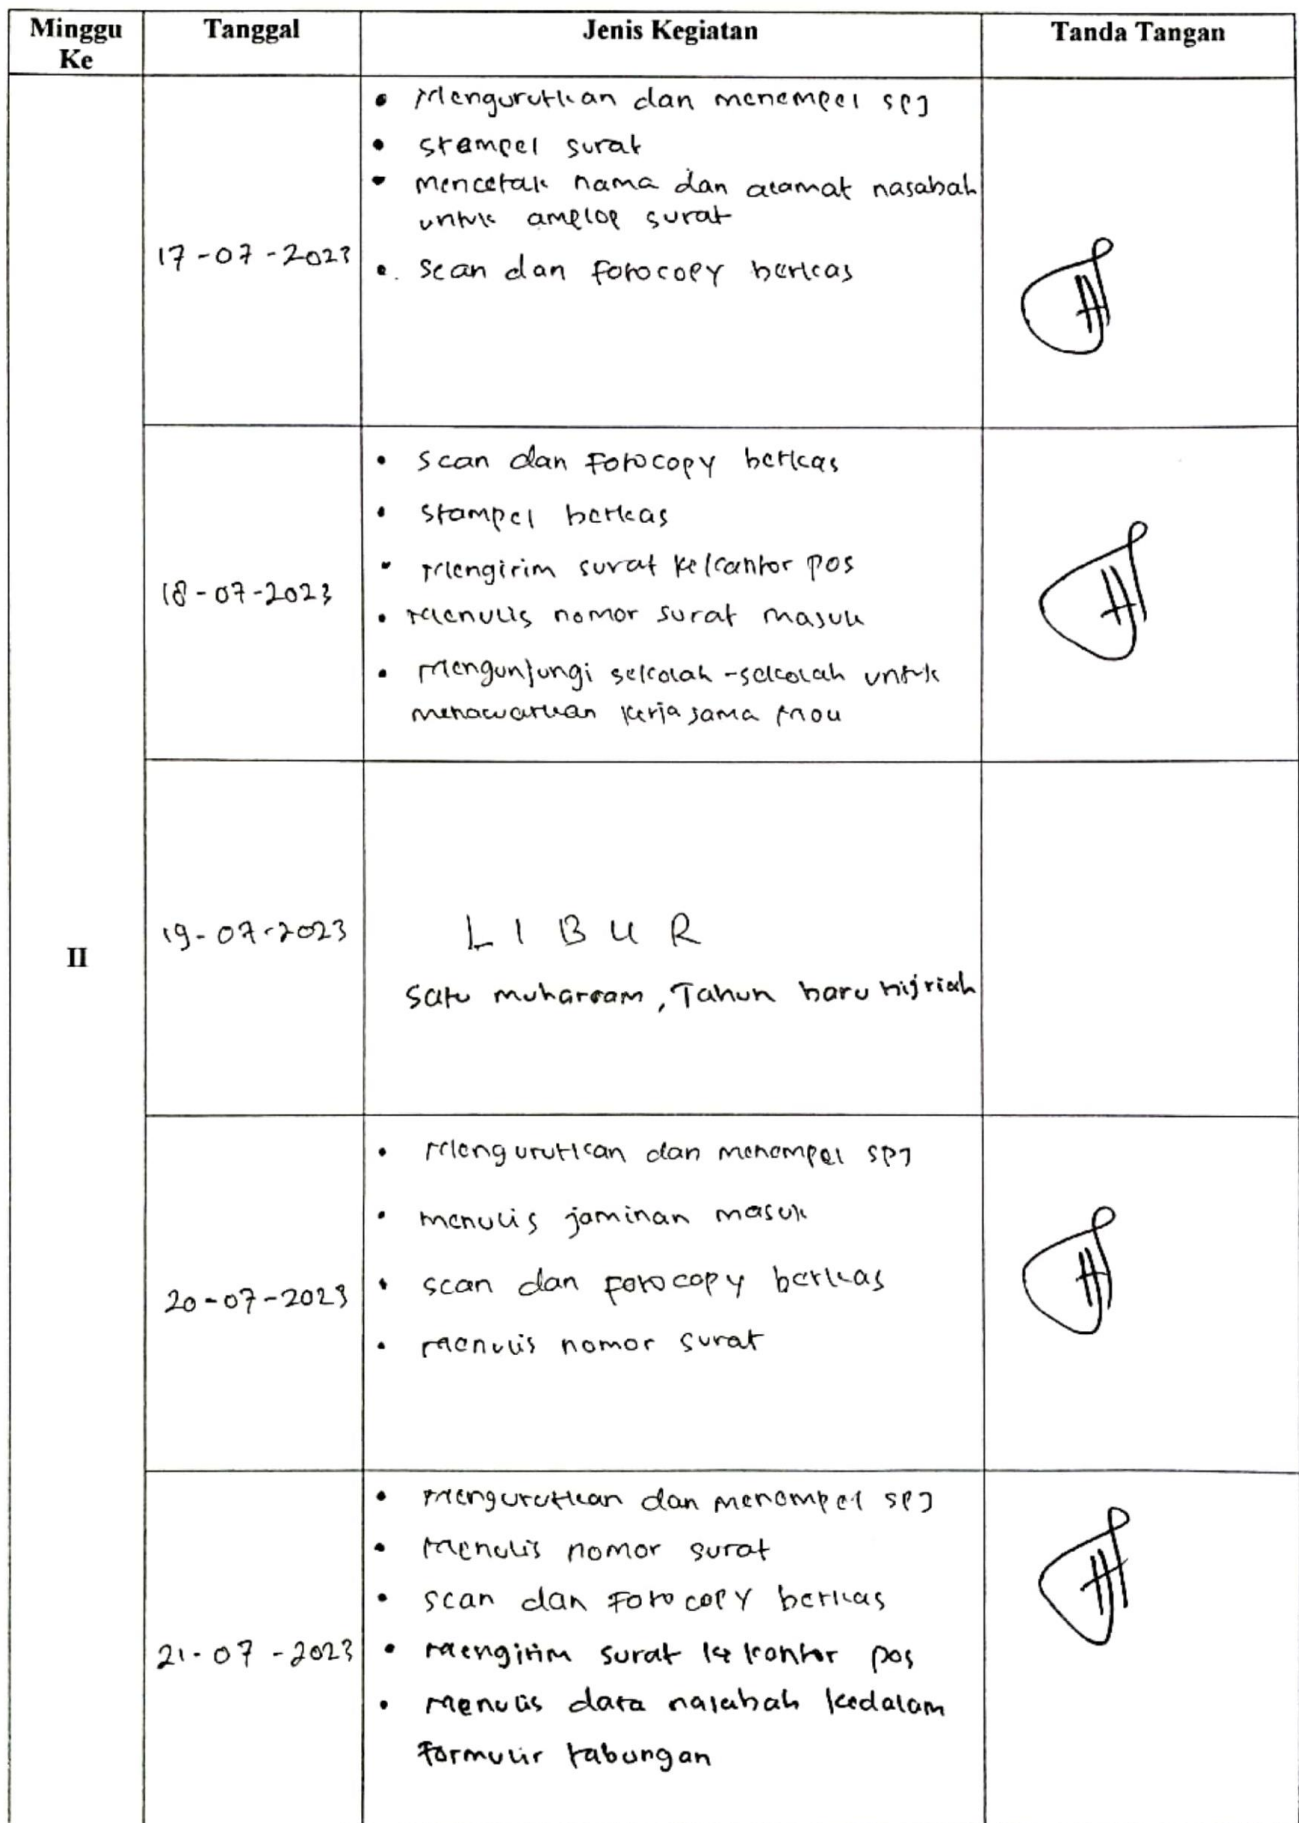 Minggu Ke Tanggal Jenis Kegiatan Tanda Tangan
II
17-07-2023
• Mengurutkan dan menempel SPJ
• Stempel surat
• Mencetak nama dan alamat nasabah
untuk amplop surat
• Scan dan Fotocopy berkas
18-07-2023
• Scan dan Fotocopy berkas
• Stampel berkas
• Mengirim surat kekantor pos
• Menulis nomor surat masuk
• Mengunjungi sekolah-sekolah untuk
menawarkan kerja sama Mou
19-07-2023
LIBUR
Satu muharram, Tahun baru hijriah
20-07-2023
• Mengurutkan dan menempel SPJ
• menulis jaminan masuk
• scan dan Fotocopy berkas
• Menulis nomor surat
21-07-2023
• Mengurutkan dan menempel SPJ
• Menulis nomor surat
• scan dan Fotocopy berkas
• Mengirim surat ke kantor pos
• Menulis data nasabah kedalam
Formulir tabungan